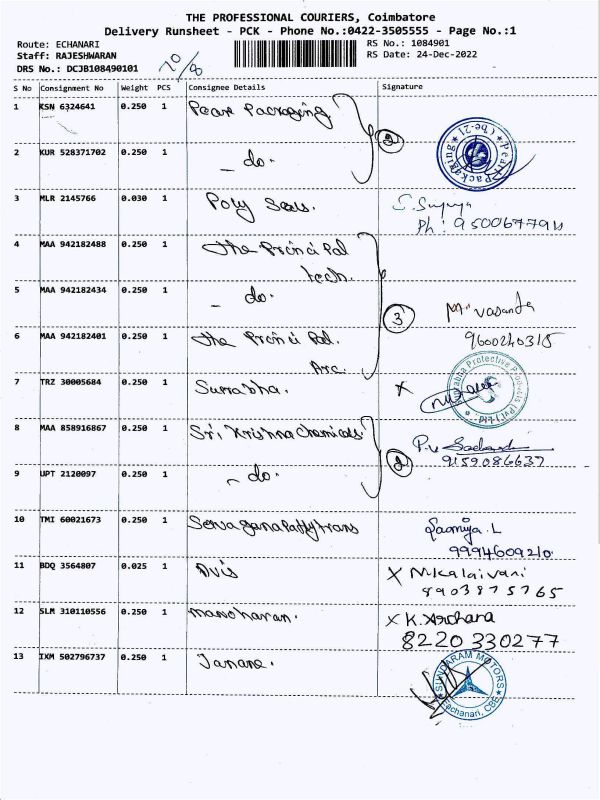 THE PROFESSIONAL COURIERS, Coimbatore
Delivery Runsheet - PCK - Phone No.:0422-3505555 - Page No.:1
Route: ECHANARI
RS No.: 1084901
Staff: RAJESHWARAN
RS Date: 24-Dec-2022
DRS No.: DCJB108490101
S No Consignment No Weight PCS Consignee Details Signature
1 KSN 6324641 0.250 1 Pearl Packaging
2 KUR 528371702 0.250 1 - do - 2
Pearl Packaging
3 MLR 2145766 0.030 1 Poly Seals.
Ph: 9500677911
4 MAA 942182488 0.250 1 The Principal
tech.
5 MAA 942182434 0.250 1 - do - 3
M. Vasanta
6 MAA 942182401 0.250 1 the Principal. 9600240315
Arc.
7 TRZ 30005684 0.250 1 Surabha. X
Surabha Protective Products (Pvt) Ltd.
8 MAA 858916867 0.250 1 Sri Krishna Chemicals 2
P.V
9159086637
9 UPT 2120097 0.250 1 - do -
10 TMI 60021673 0.250 1 Selvaganapathy trans
Sowmiya. L
9994609210
11 BDQ 3564807 0.025 1 Dvis X M.Kalaivani
8903875765
12 SLM 310110556 0.250 1 Manoharan. X K. Archara
8220 330277
13 IXM 502796737 0.250 1 Janane.
SUNDARAM MOTORS
Eachanari, CBE